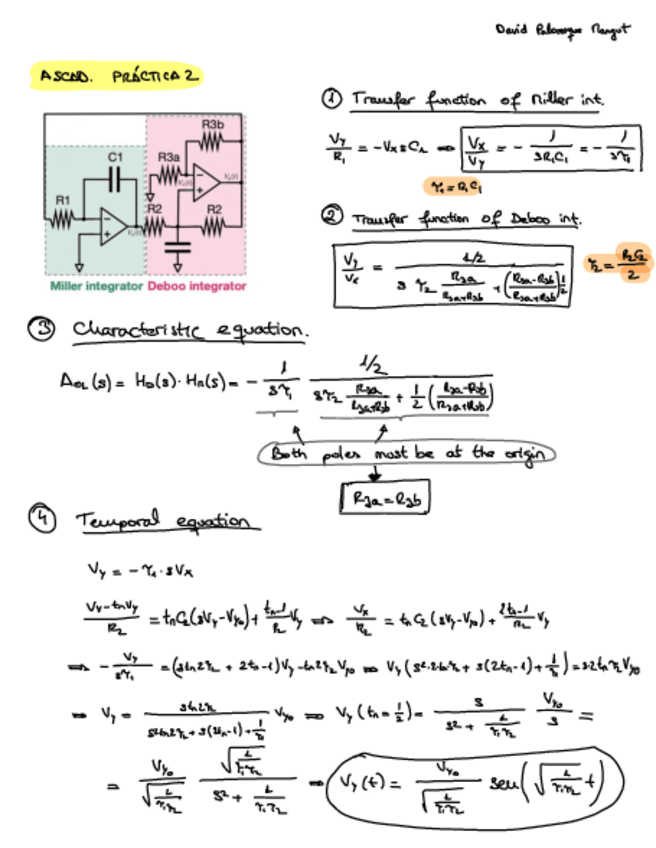 David Palomeque Mangut
ASCAD. PRÁCTICA 2
R3b
C1
R3a
R1
R2
R2
Miller integrator Deboo integrator
① Transfer function of Miller int.
Vy/R1 = -Vx s C1 ⇒ Vx/Vy = - 1/(sR1C1) = - 1/(sτ1)
τ1 = R1C1
② Transfer function of Deboo int.
Vy/Vx = (1/2)/(s τ2 R3a/(R3a+R3b) + ((R3a-R3b)/(R3a+R3b)) 1/2)
τ2 = R2C2/2
③ Characteristic equation.
AOL(s) = HD(s)·HM(s) = - 1/(sτ1) (1/2)/(sτ2 R3a/(R3a+R3b) + 1/2 ((R3a-R3b)/(R3a+R3b)))
Both poles must be at the origin
R3a = R3b
④ Temporal equation
Vy = -τ1·sVx
(Vx-tnVy)/R2 = tnC2(sVy-Vyo) + (tn-1)/R2 Vy ⇒ Vx/R2 = tnC2(sVy-Vyo) + (2tn-1)/R2 Vy
⇒ - Vy/(sτ1) = (stn2τ2 + 2tn-1)Vy - tn2τ2Vyo ⇒ Vy(s²·2tnτ2 + s(2tn-1) + 1/τ1) = s2tnτ2Vyo
⇒ Vy = stn2τ2/(s²tn2τ2 + s(2tn-1) + 1/τ1) Vyo ⇒ Vy(tn = 1/2) = s/(s² + 1/(τ1τ2)) Vyo/s =
= Vyo/√(1/(τ1τ2)) √(1/(τ1τ2))/(s² + 1/(τ1τ2)) ⇒ Vy(t) = Vyo/√(1/(τ1τ2)) sen(√(1/(τ1τ2)) t)